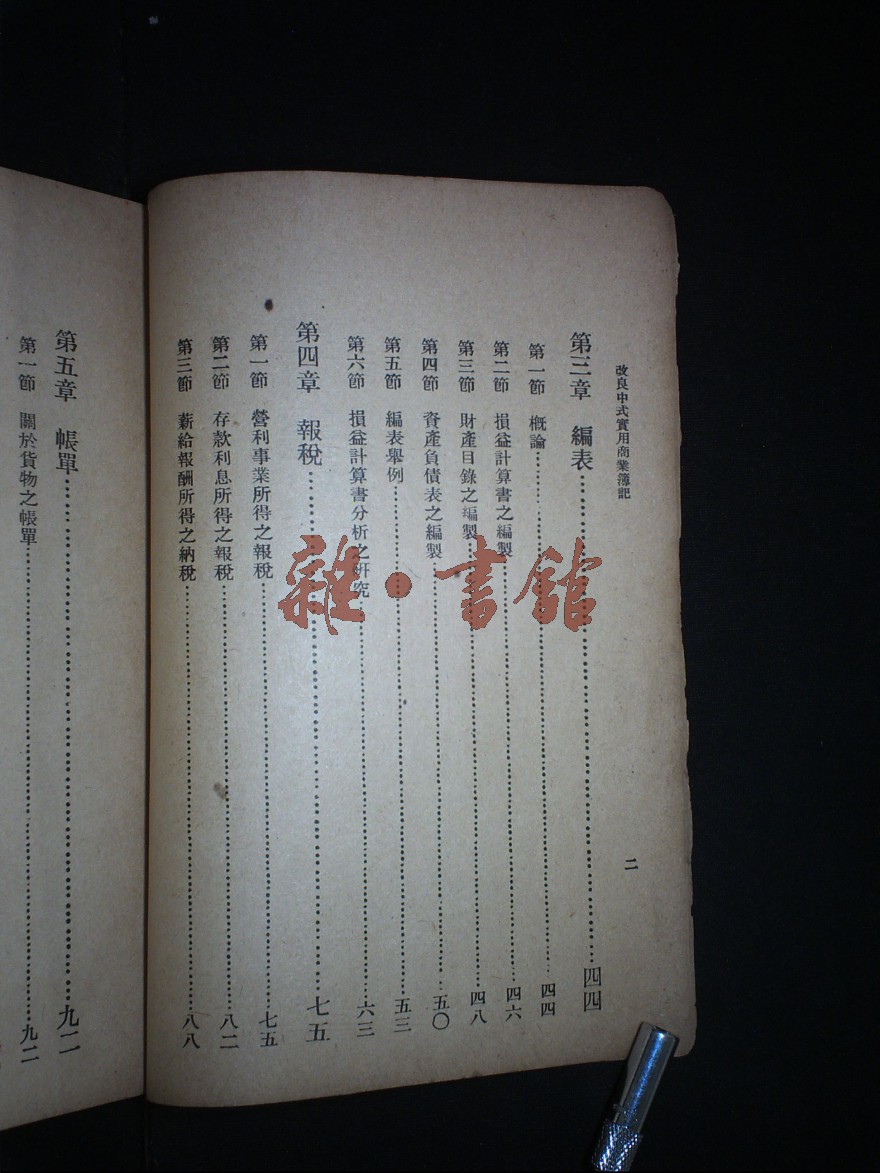 改良中式實用商業簿記
二
第三章 編表……四四
第一節 概論……四四
第二節 損益計算書之編製……四六
第三節 財產目錄之編製……四八
第四節 資產負債表之編製……五〇
第五節 編表舉例……五三
第六節 損益計算書分析之研究……六三
第四章 報稅……七五
第一節 營利事業所得之報稅……七五
第二節 存款利息所得之報稅……八二
第三節 薪給報酬所得之納稅……八八
第五章 帳單……九二
第一節 關於貨物之帳單……九二
雜·書館